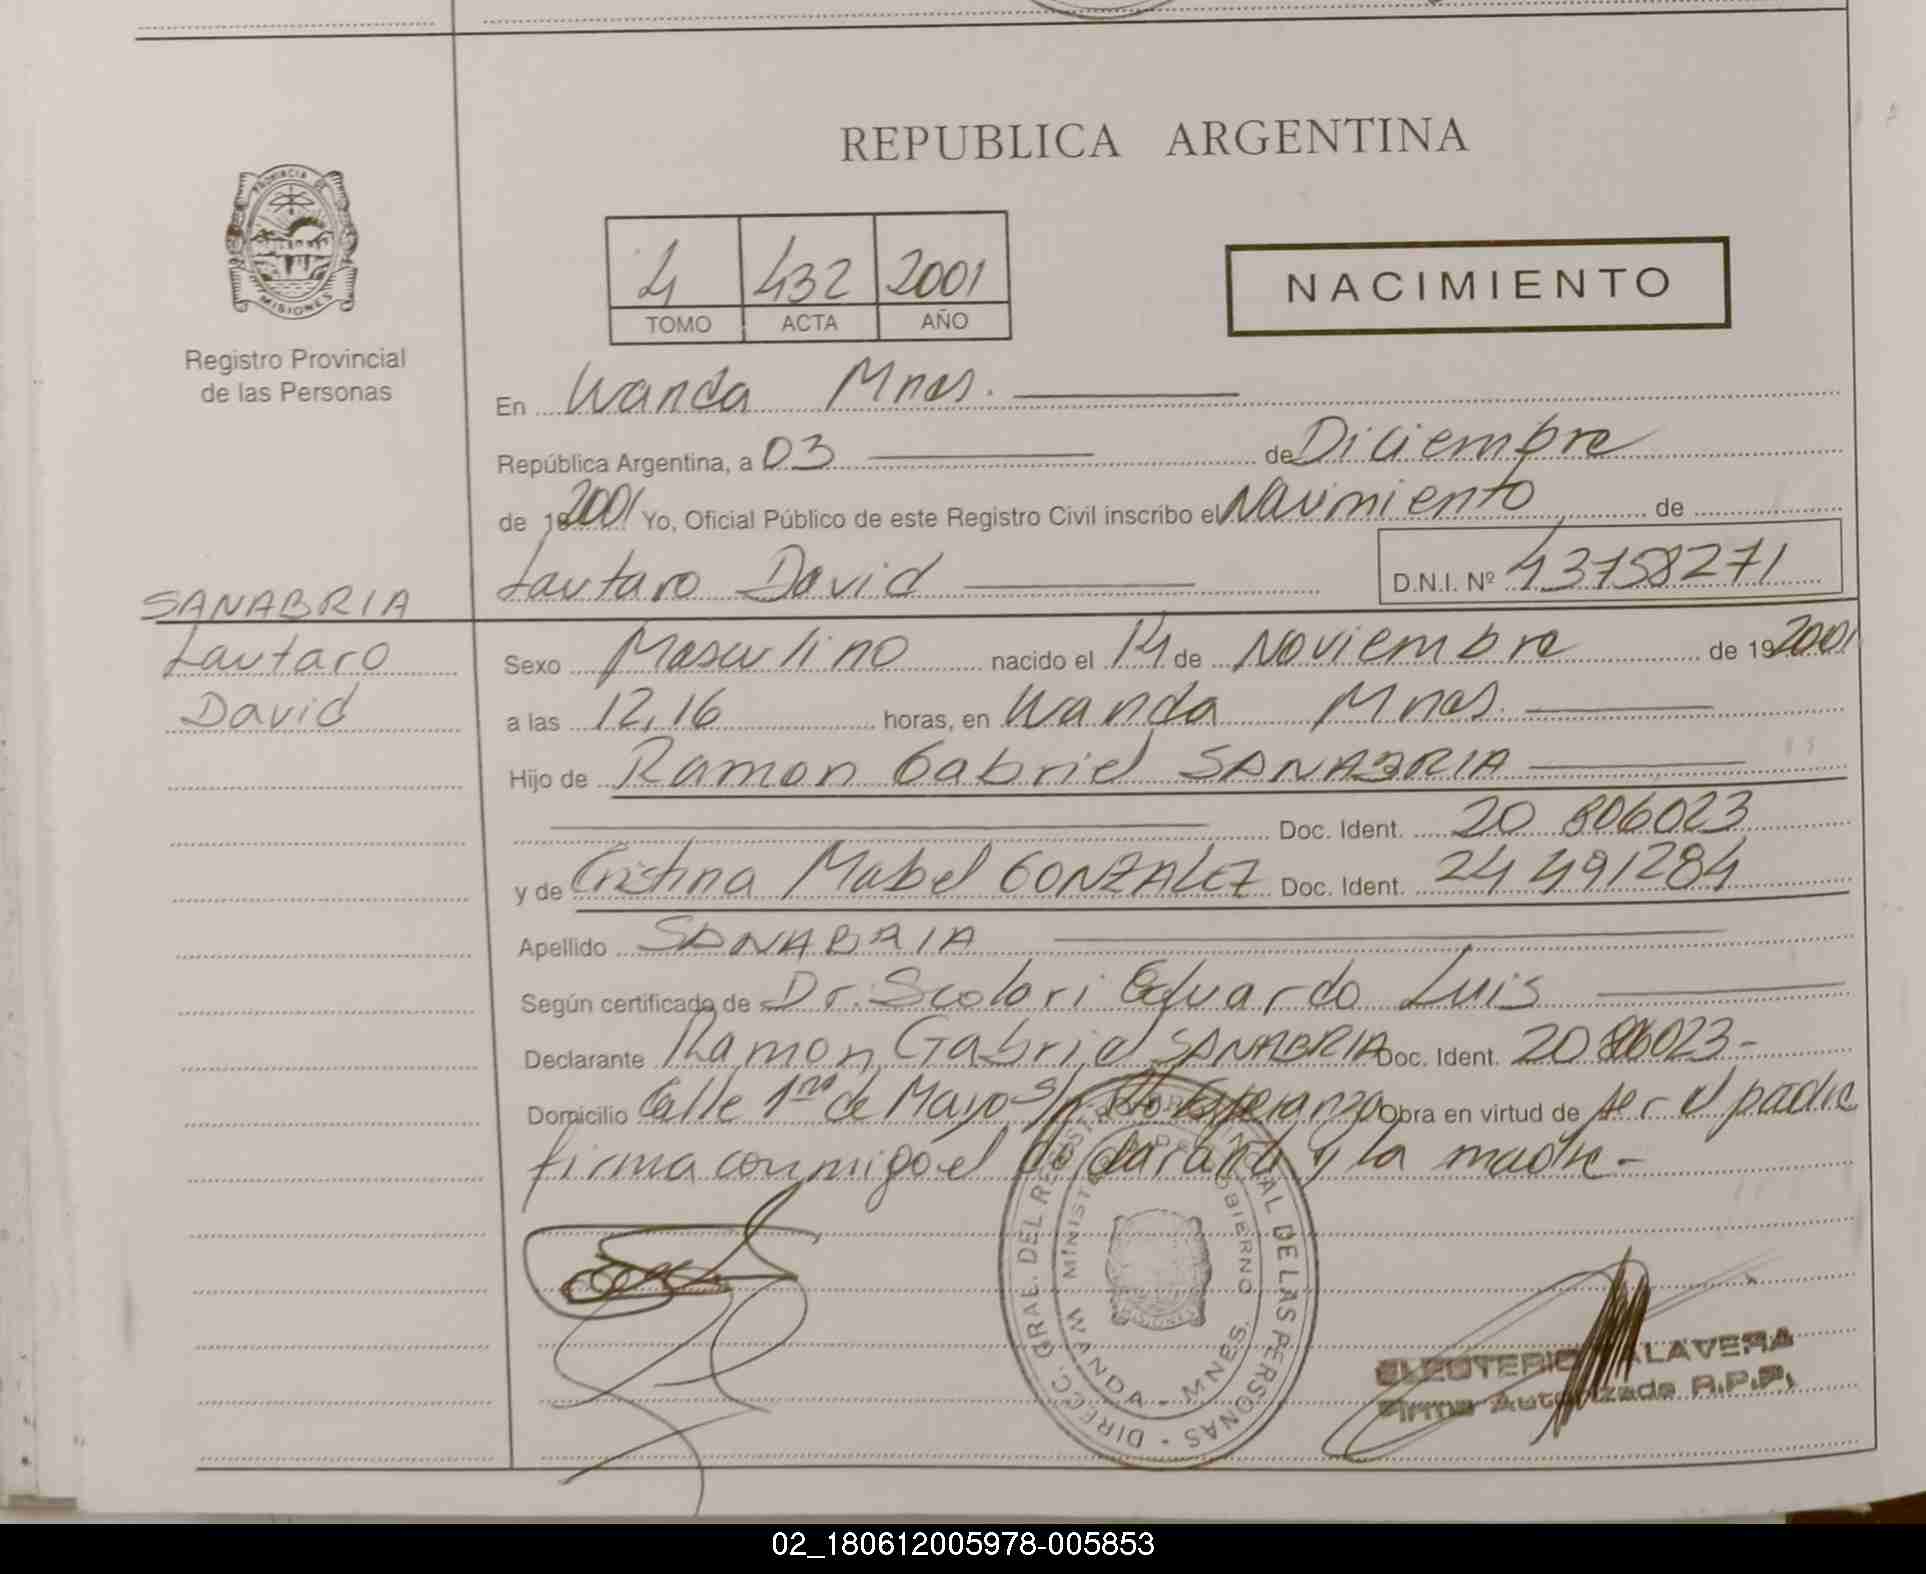 REPUBLICA ARGENTINA
PROVINCIA DE
MISIONES
Registro Provincial
de las Personas
4 432 2001
TOMO ACTA AÑO
NACIMIENTO
En Wanda Mnes.
República Argentina, a 03 de Diciembre
de 19 2001 Yo, Oficial Público de este Registro Civil inscribo el Nacimiento de
Lautaro David D.N.I. Nº 43758271
SANABRIA
Lautaro
David
Sexo Masculino nacido el 14 de Noviembre de 19 2001
a las 12,16 horas, en Wanda Mnes.
Hijo de Ramon Gabriel SANABRIA
Doc. Ident. 20 806023
y de Cristina Mabel GONZALEZ Doc. Ident. 24 491284
Apellido SANABRIA
Según certificado de Dr. Scolari Eduardo Luis
Declarante Ramon Gabriel SANABRIA Doc. Ident. 20 806023-
Domicilio Calle 1ro de Mayo s/n Esperanza Obra en virtud de ser el padre
firma conmigo el declarante y la madre-
DIRECC. GRAL. DEL REGISTRO PROVINCIAL DE LAS PERSONAS -
MINISTERIO DE GOBIERNO
WANDA - MNES.
MISIONES
ELEUTERIO TALAVERA
Firma Autorizada R.P.P.
02_180612005978-005853